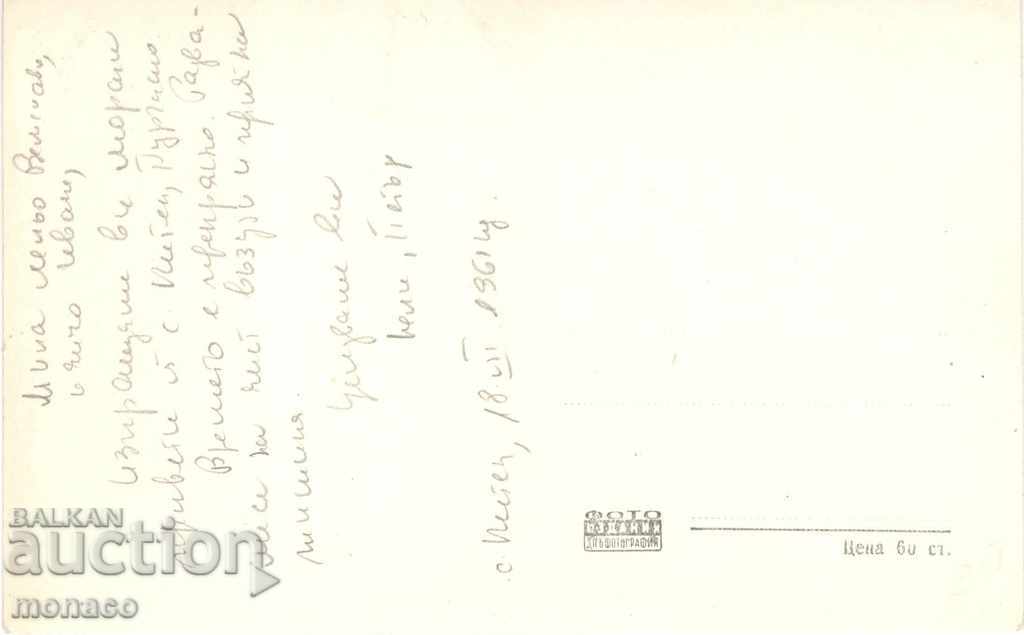 Мила лельо Величаво,
и чичо Иван,
Изпращаме ви морски
привети от с. Китен, Бургаско.
Времето е прекрасно. Радва-
ме се на чист въздух и приятна
тишина.
Целуваме ви
Нели, Петър
с. Китен, 18.VIII 1961 г.
ФОТО
ИЗДАНИЯ
ДП„ФОТОГРАФИЯ"
Цена 60 ст.
BALKAN
auction
monaco